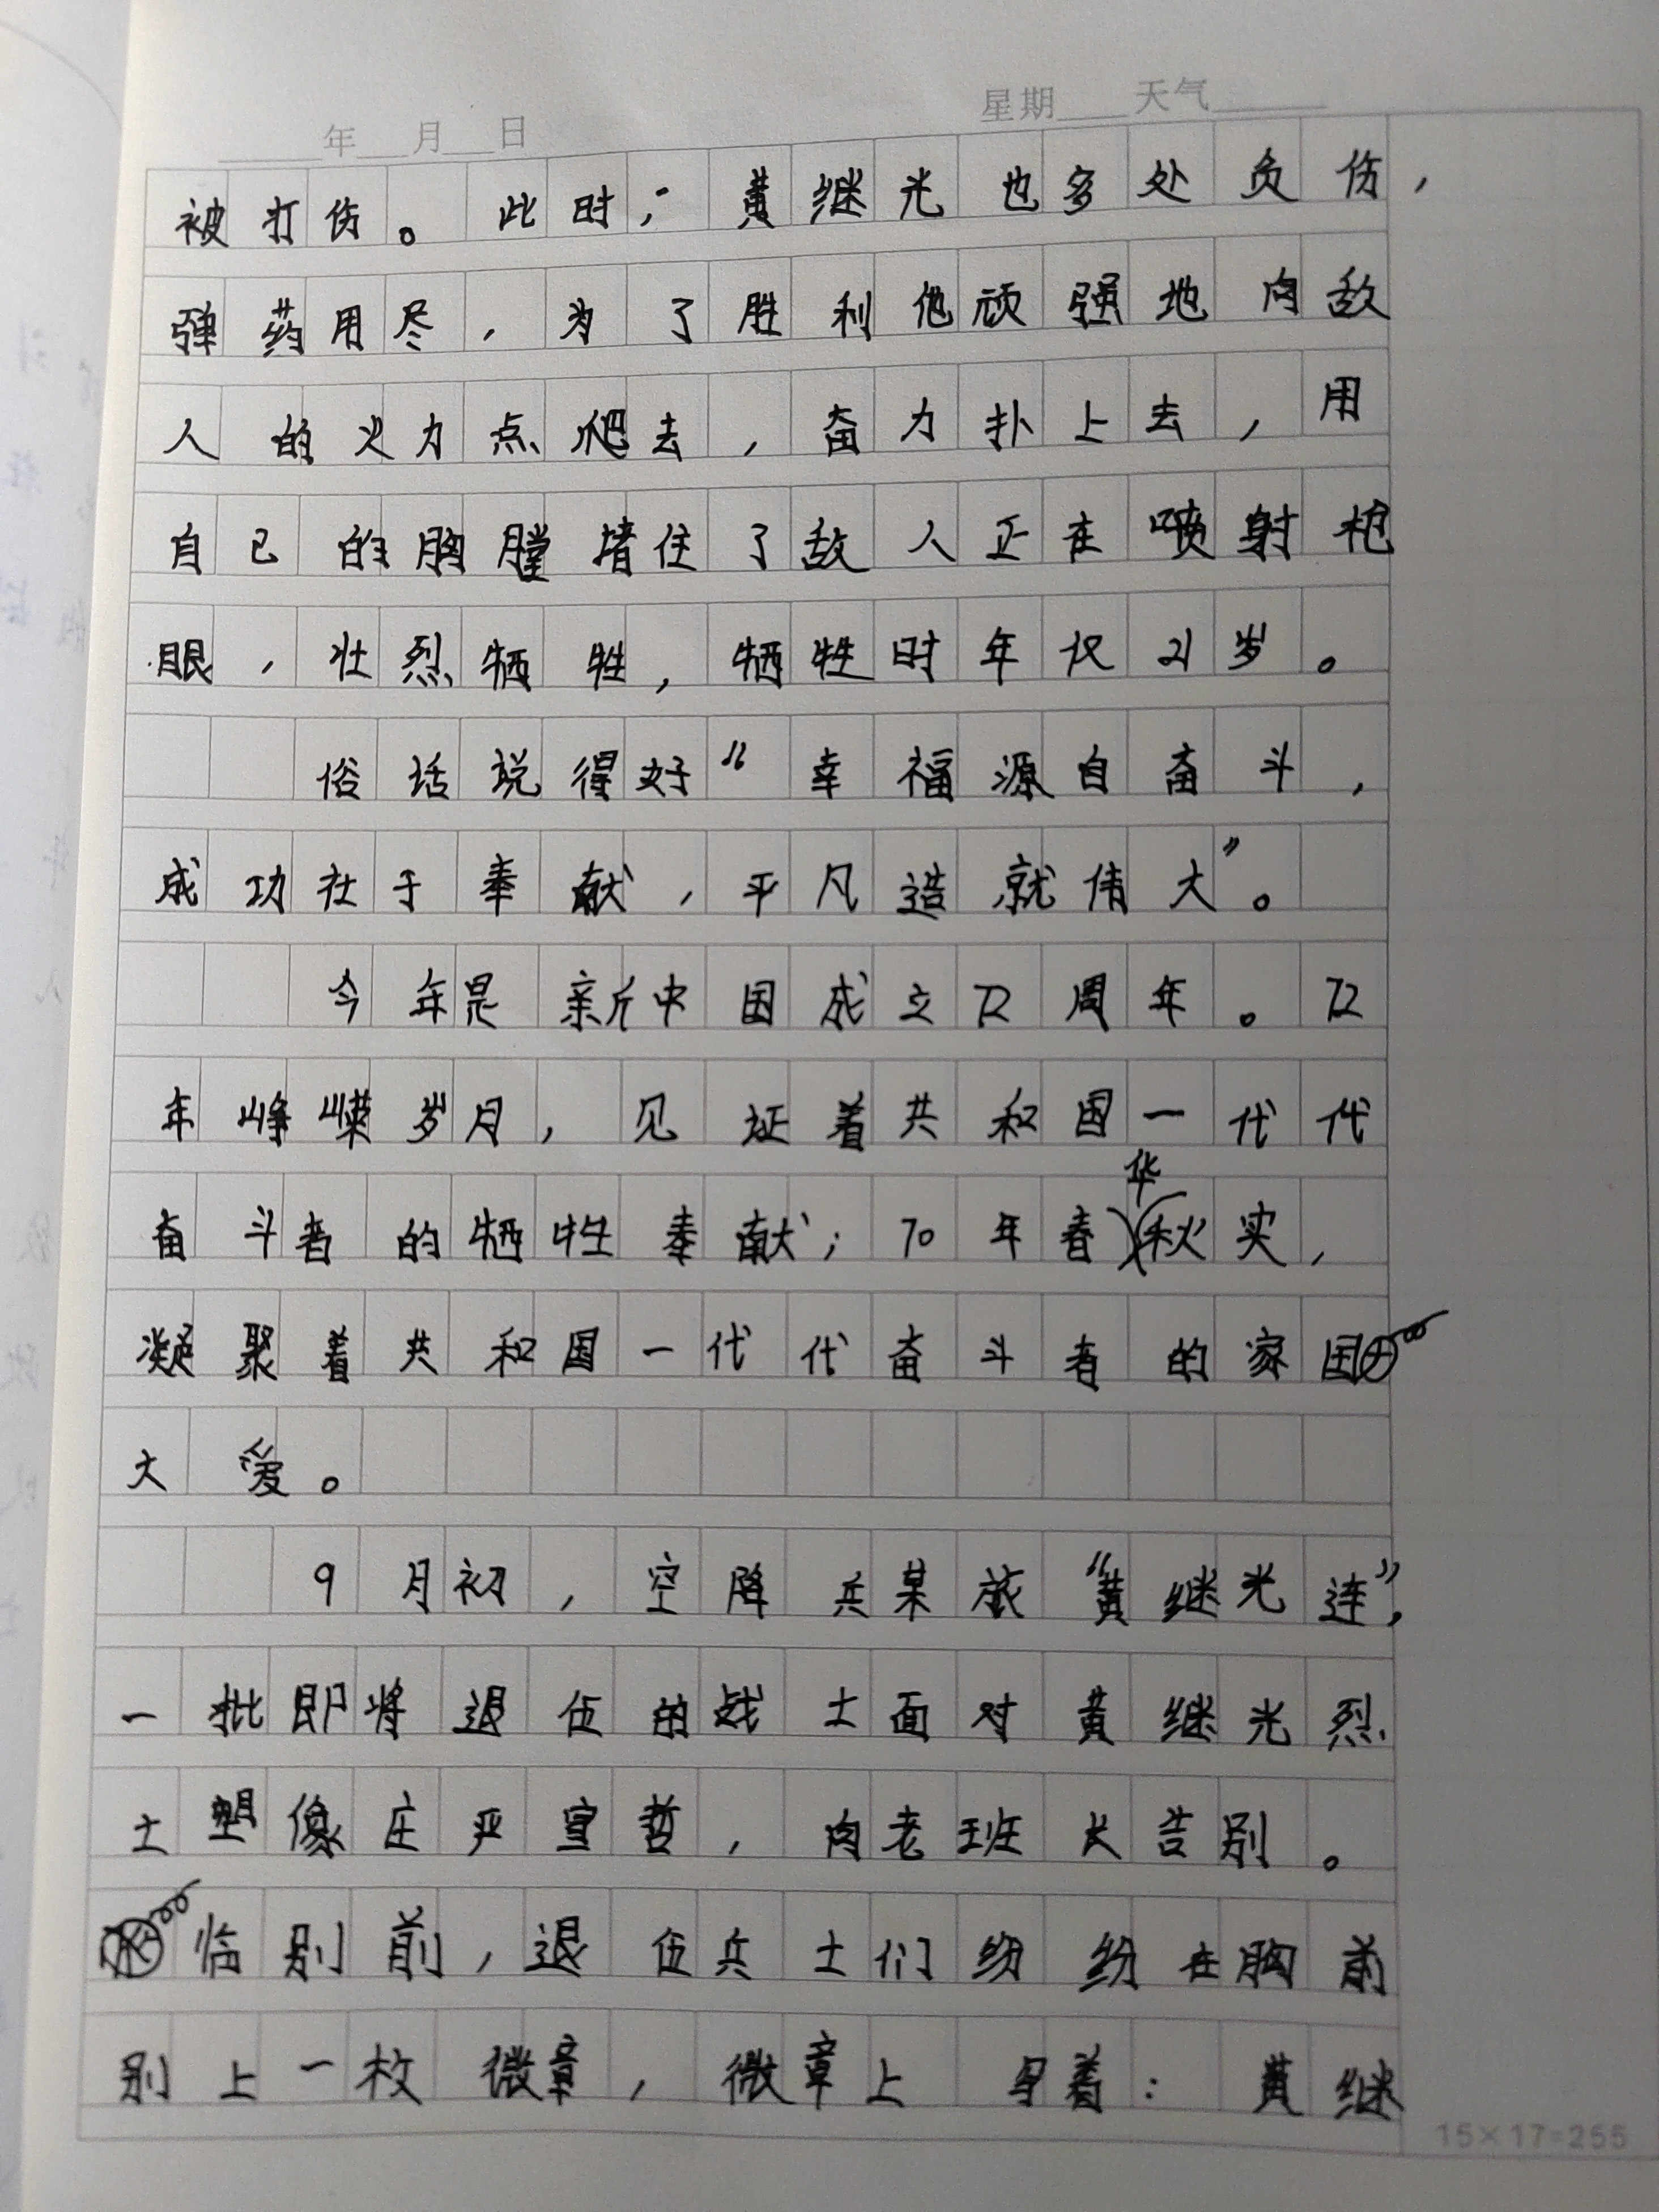 年 月 日 星期 天气
被打伤。此时，黄继光也多处负伤，
弹药用尽，为了胜利他顽强地向敌
人的火力点爬去，奋力扑上去，用
自己的胸膛堵住了敌人正在喷射枪
眼，壮烈牺牲，牺牲时年仅21岁。
俗话说得好“幸福源自奋斗，
成功在于奉献，平凡造就伟大”。
今年是新中国成立72周年。72
年峥嵘岁月，见证着共和国一代代
奋斗者的牺牲奉献；70年春华秋实，
凝聚着共和国一代代奋斗者的家国
大爱。
9月初，空降兵某旅“黄继光连”，
一批即将退伍的战士面对黄继光烈
士塑像庄严宣哲，向老班长告别。
临别前，退伍兵士们纷纷在胸前
别上一枚微章，微章上写着：黄继
15×17=255